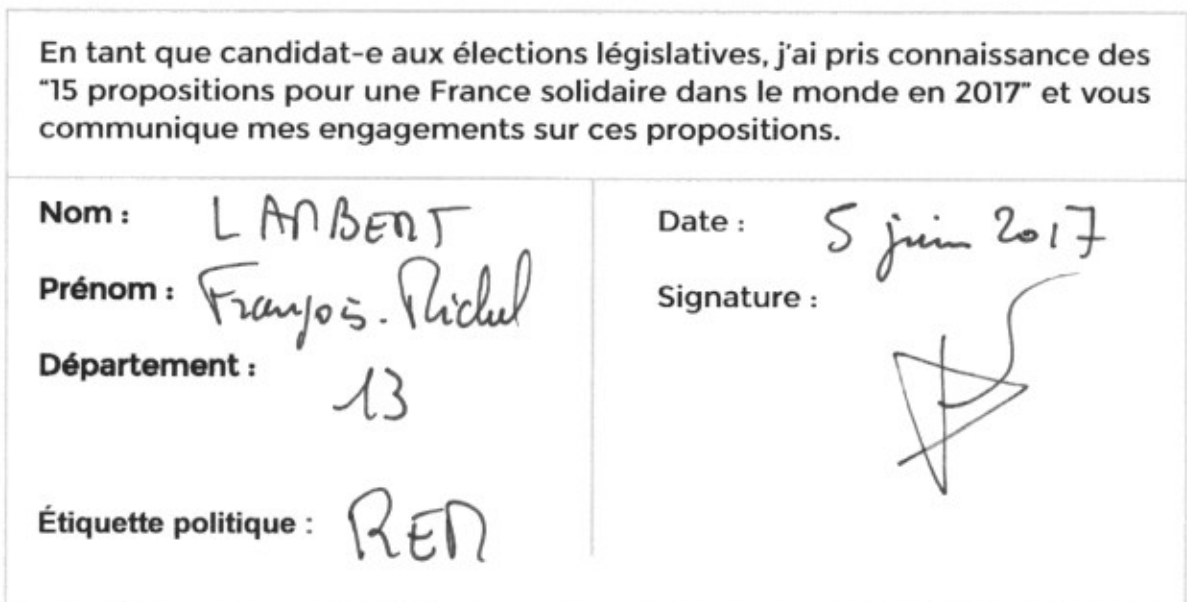 En tant que candidat-e aux élections législatives, j'ai pris connaissance des
"15 propositions pour une France solidaire dans le monde en 2017" et vous
communique mes engagements sur ces propositions.
Nom : LAMBERT
Prénom : François-Michel
Département : 13
Étiquette politique : REM
Date : 5 juin 2017
Signature :